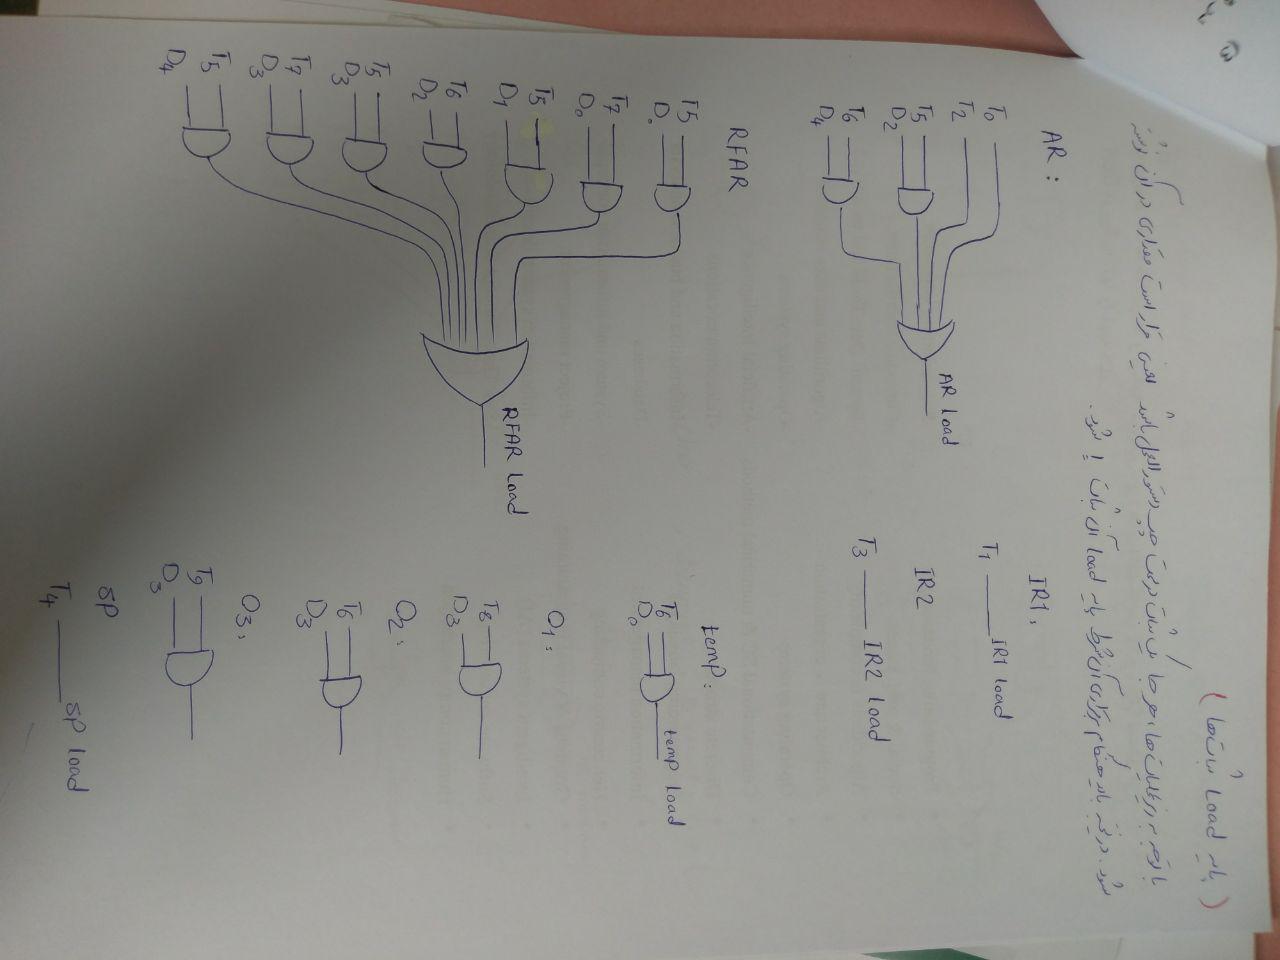 ( پایه Load ثبات‌ها )
با توجه به ریزعملیات ها، هر جا یک ثبات در سمت چپ دستورالعمل باشد یعنی قرار است مقداری در آن نوشته
شود. در نتیجه باید هنگام برقراری آن شرط پایه load آن ثبات 1 شود.
AR :
T0
T2
T5
D2
T6
D4
AR Load
IR1:
T1 IR1 load
IR2
T3 IR2 Load
RFAR
T5
D0
T7
D0
T5
D1
T6
D2
T5
D3
T7
D3
T5
D4
RFAR Load
temp:
T6
D0
temp Load
O1:
T8
D3
O2:
T6
D3
O3:
T9
D3
SP
T4 SP load